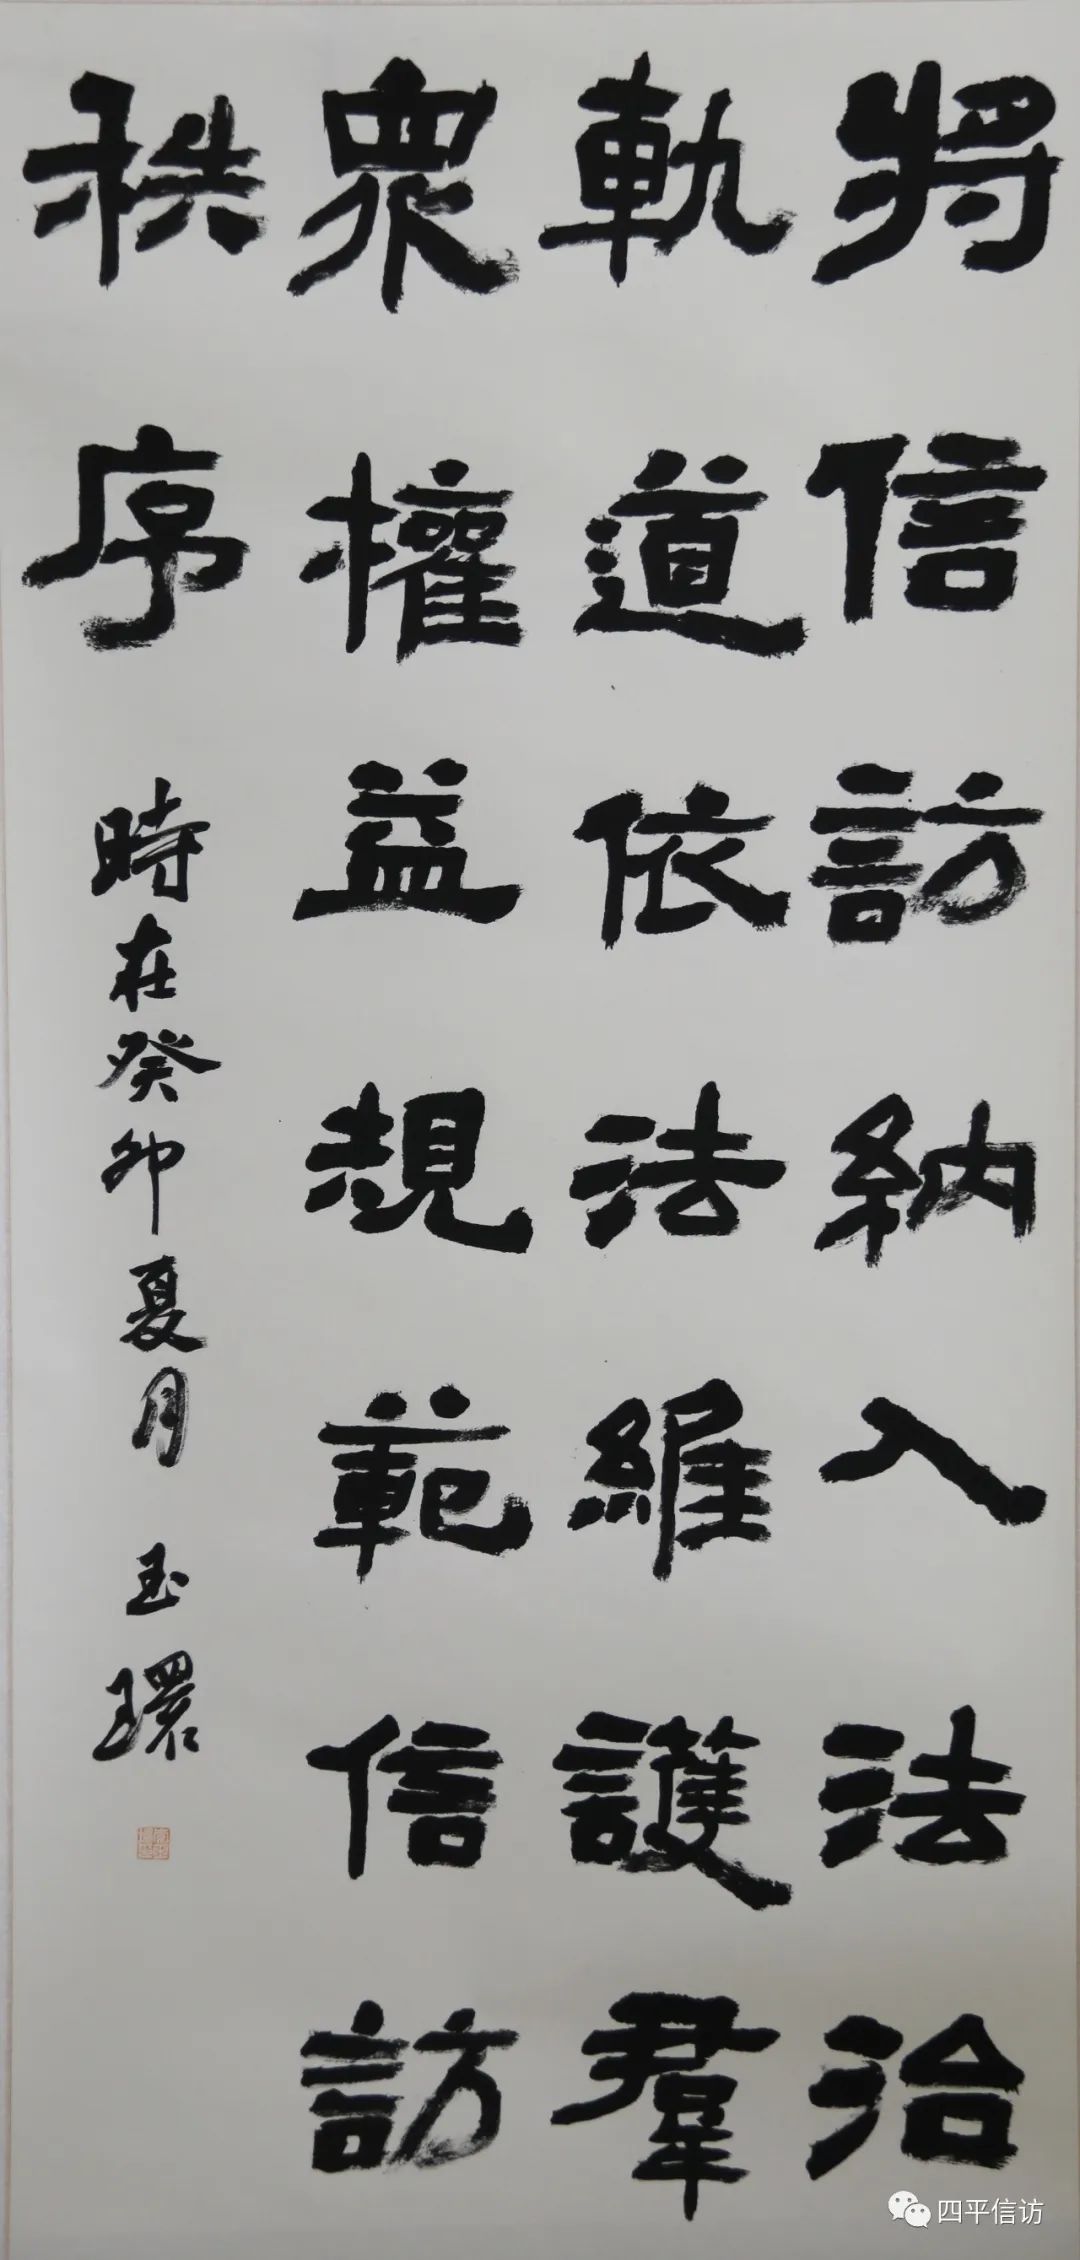 將信訪納入法治
軌道依法維護羣
衆權益規範信訪
秩序
時在癸卯夏月 玉環
四平信访